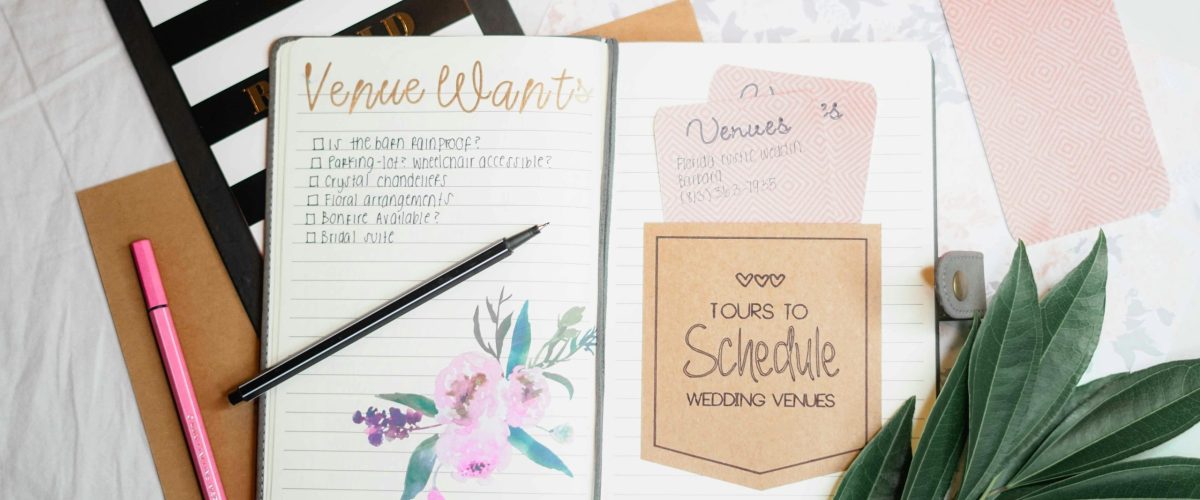 Venue Wants
Is the barn rainproof?
Parking-lot? Wheelchair accessible?
Crystal chandeliers
Floral arrangements
Bonfire Available?
Bridal suite
Venues
's
Florida rustic weddin
Barbara
(813) 363-7935
TOURS TO
Schedule
WEDDING VENUES